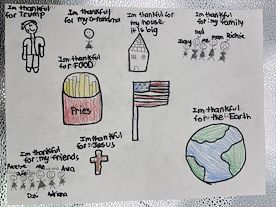 Im thankful
for Trump
Im thankful
for my grandma
Im thankful for
my house
it is big
Im thankful
for: my family
dad
mom
Richie
Im thankful
for FOOD
Fries
Im thankful
for the Earth
Im thankful
for: Jesus
Im thankful
for: my friends
me
Ava
Adriana